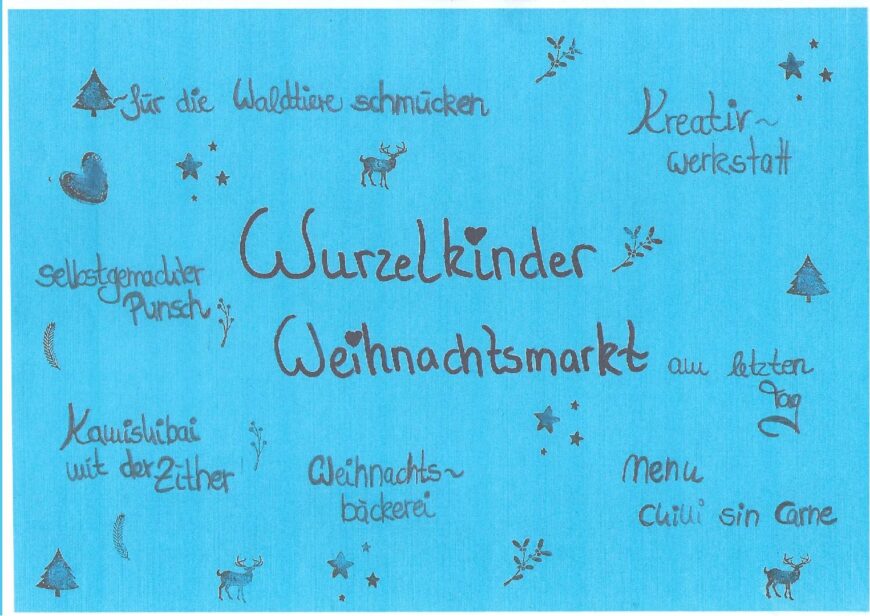 ~für die Waldtiere schmücken
Kreativ~
werkstatt
Wurzelkinder
selbstgemachter
Punsch
Weihnachtsmarkt am letzten
Tag
Kamishibai
mit der Zither
Weihnachts~
bäckerei
Menu
Chilli sin Carne